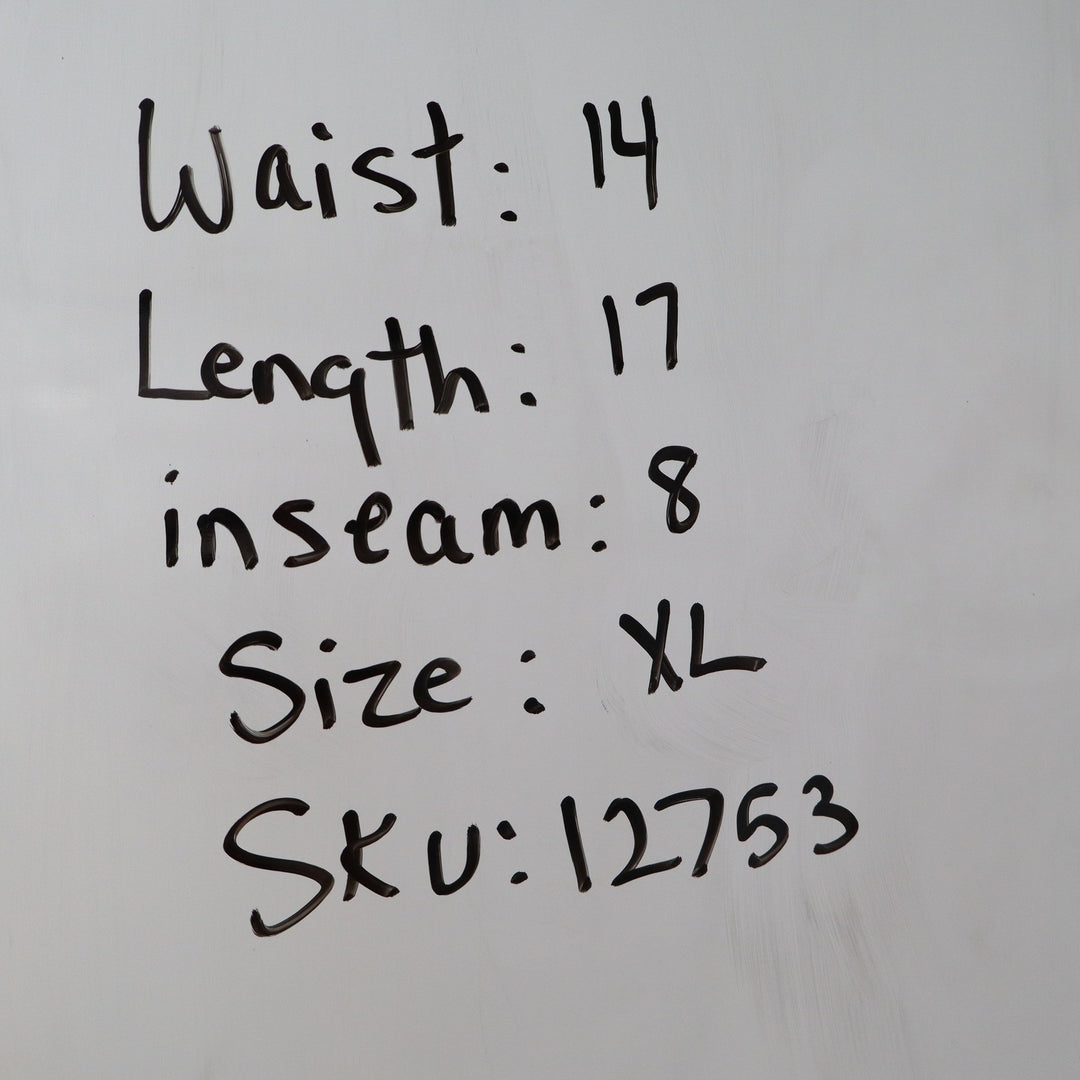 Waist: 14
Length: 17
inseam: 8
Size: XL
SKU: 12753